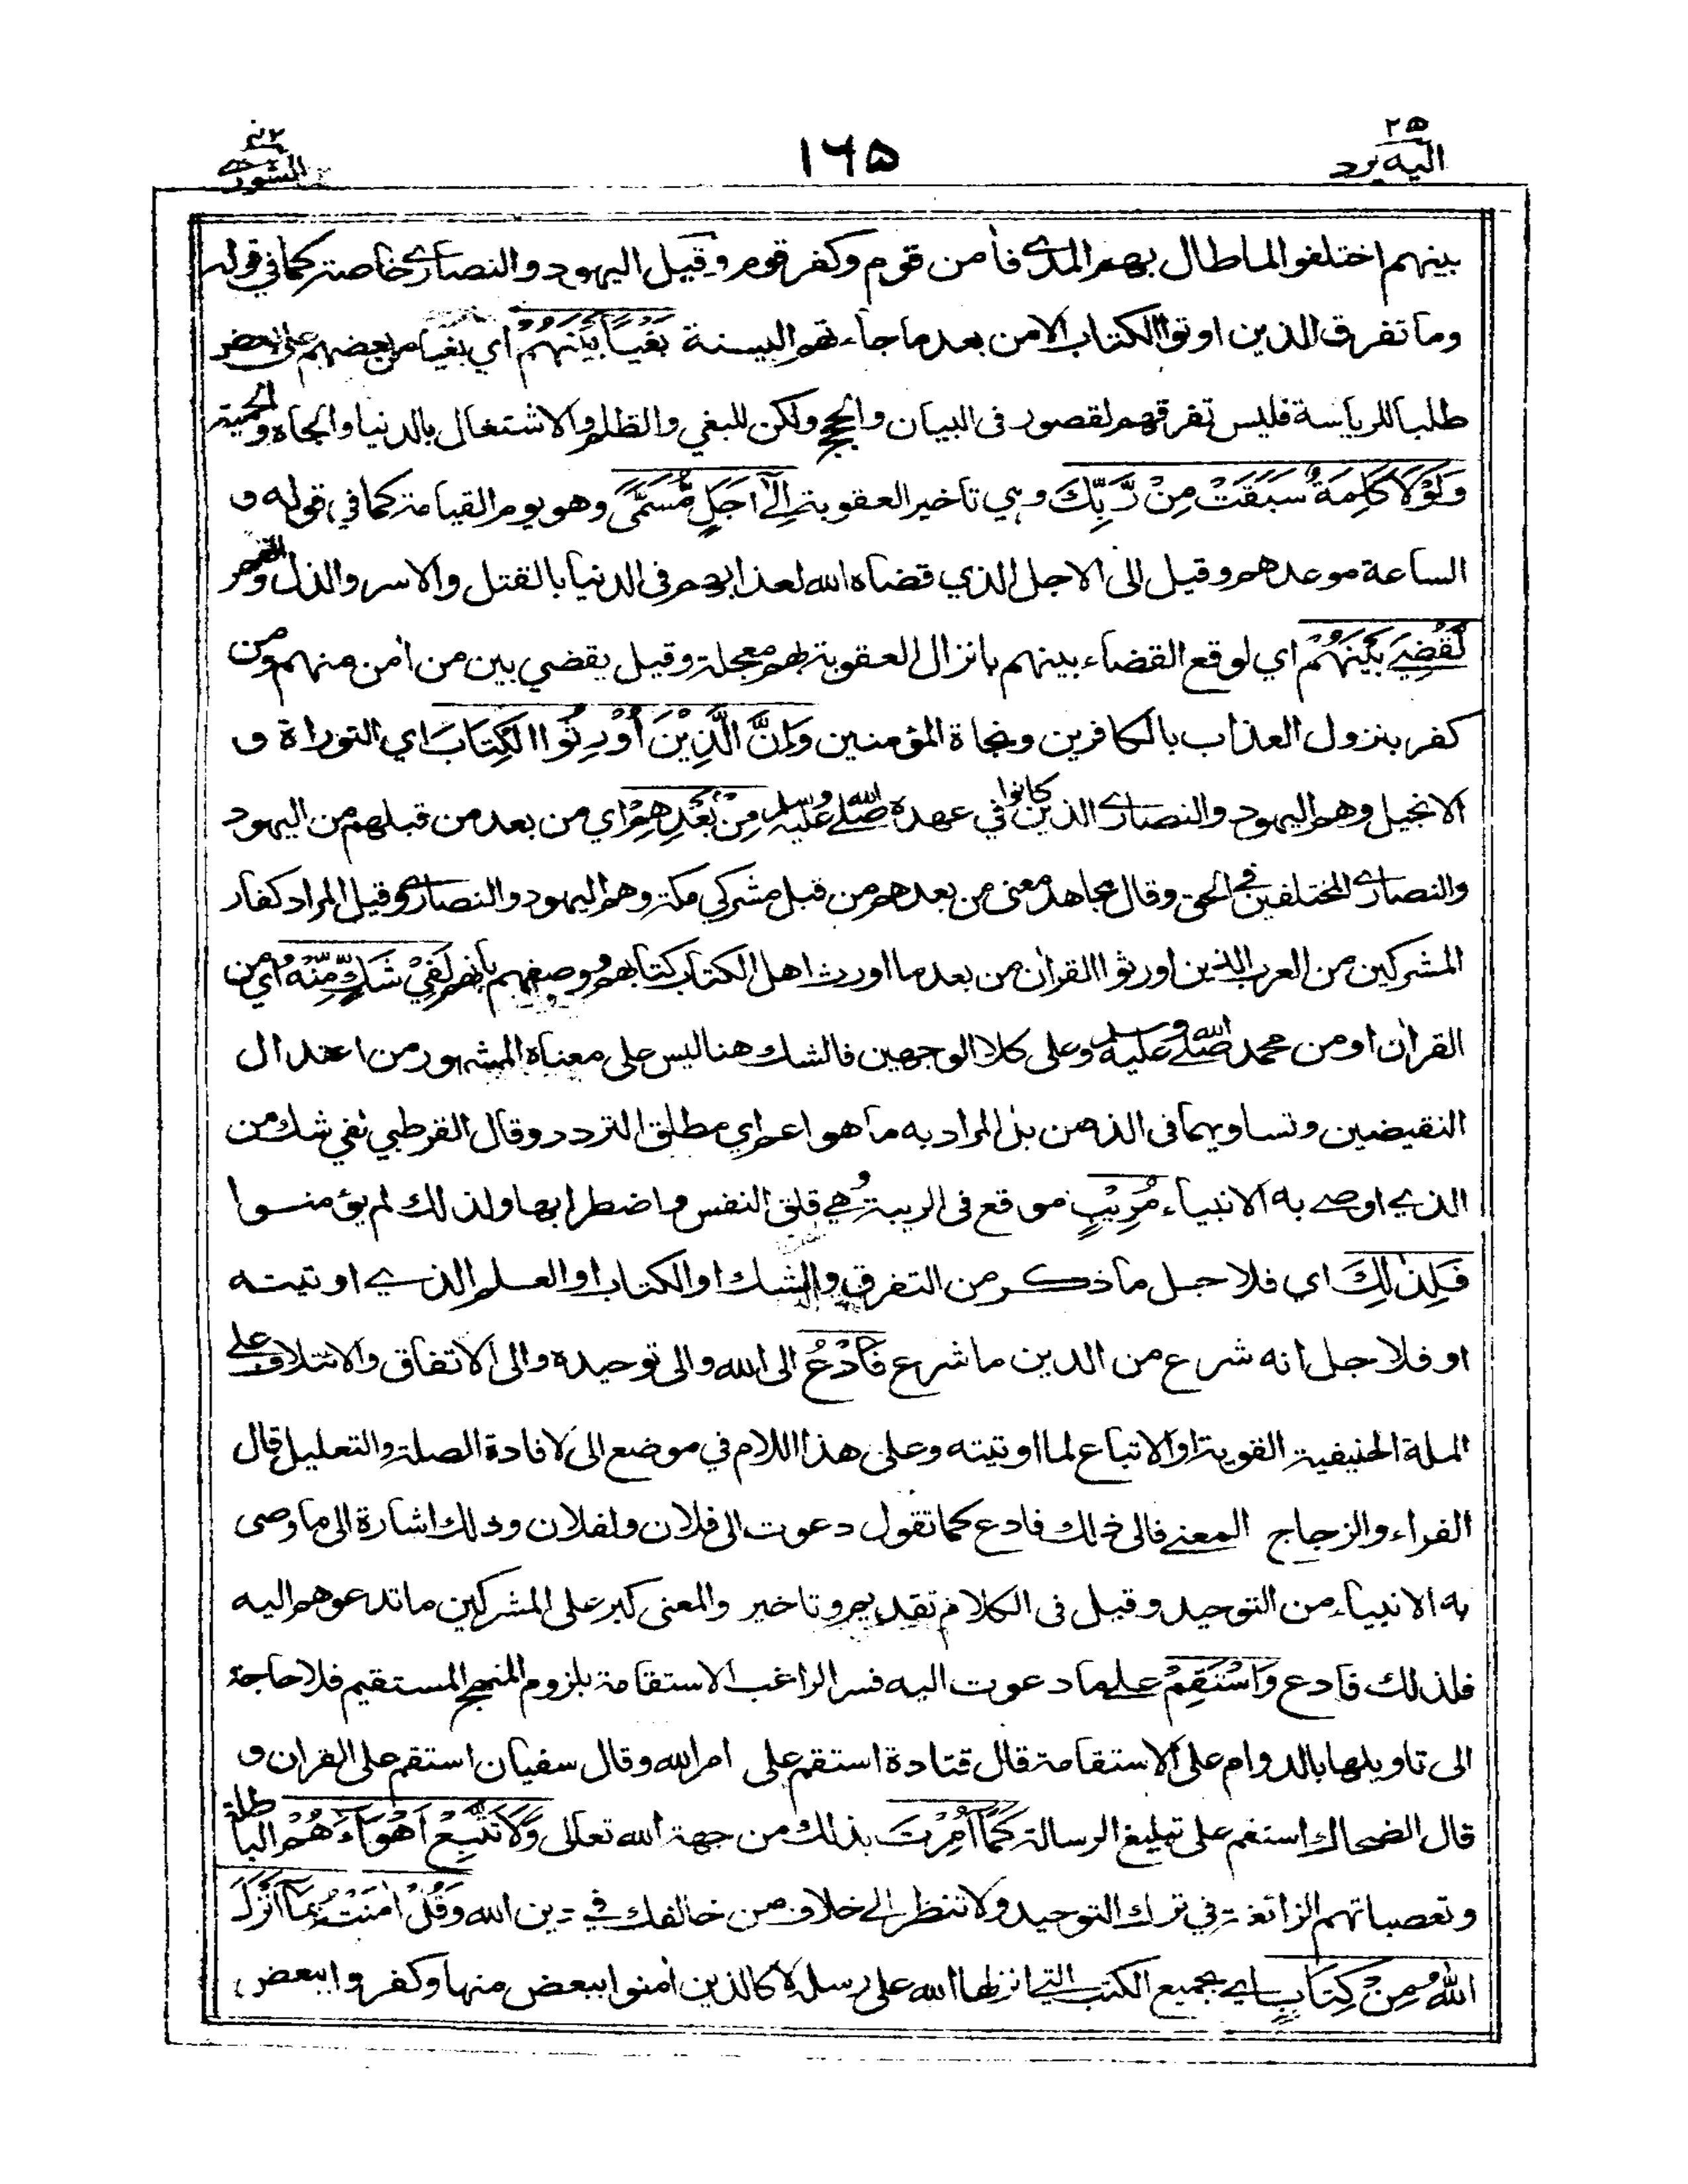 ٢٥
اليه يرد
١٦٥
الشورى
بينهم اختلفوا لما طال بهم المدى فاٰمن قوم وكفر قوم وقيل اليهود والنصارى خاصة كما في قوله
وما تفرق الذين اوتوا الكتاب الا من بعد ما جاءتهم البينة بَغْيًا بَيْنَهُمْ اي بغيا من بعضهم على بعض
طلبا للرياسة فليس تفرقهم لقصور فى البيان والحجج ولكن للبغي والظلم والاشتغال بالدنيا والجاه والحمية
وَلَوْلَا كَلِمَةٌ سَبَقَتْ مِنْ رَّبِّكَ وهي تاخير العقوبة اِلٰٓى اَجَلٍ مُّسَمًّى وهو يوم القيامة كما في قوله و
الساعة موعدهم وقيل الى الاجل الذي قضاه الله لعذابهم فى الدنيا بالقتل والاسر والذل والقهر
لَقُضِيَ بَيْنَهُمْ اي لوقع القضاء بينهم بانزال العقوبة بهم معجلة وقيل يقضي بين من اٰمن منهم ومن
كفر بنزول العذاب بالكافرين ونجاة المؤمنين وَاِنَّ الَّذِيْنَ اُوْرِثُوا الْكِتَابَ اي التوراة و
الانجيل وهم اليهود والنصارى الذين كانوا في عهده صلى الله عليه وسلم مِنْ بَعْدِهِمْ اي من بعد من قبلهم من اليهود
والنصارى المختلفين فى الحق وقال مجاهد معنى من بعدهم من قبل مشركي مكة وهم اليهود والنصارى وقيل المراد كفار
المشركين من العرب الذين اورثوا القراٰن من بعد ما اورث اهل الكتاب كتابهم ووصفهم بانهم لَفِيْ شَكٍّ مِّنْهُ اي من
القراٰن او من محمد صلى الله عليه وسلم وعلى كلا الوجهين فالشك هنا ليس على معناه المشهور من اعتدال
النقيضين وتساويهما فى الذهن بل المراد به ما هو اعم اي مطلق التردد وقال القرطبي لفي شك من
الذي اوصى به الانبياء مُرِيْبٍ موقع فى الريبة وهي قلق النفس واضطرابها ولذلك لم يؤمنوا
فَلِذٰلِكَ اي فلاجل ما ذكر من التفرق والشك او الكتاب او العلم الذي اوتيته
او فلاجل انه شرع من الدين ما شرع فَادْعُ الى الله والى توحيده والى الاتفاق والائتلاف على
الملة الحنيفية القويمة او الاتباع لما اوتيته وعلى هذا اللام في موضع الى لافادة الصلة والتعليل قال
الفراء والزجاج المعنى فالى ذلك فادع كما تقول دعوت الى فلان ولفلان وذلك اشارة الى ما وصى
به الانبياء من التوحيد وقيل فى الكلام تقديم وتاخير والمعنى كبر على المشركين ما تدعوهم اليه
فلذلك فادع وَاسْتَقِمْ على ما دعوت اليه فسر الراغب الاستقامة بلزوم المنهج المستقيم فلا حاجة
الى تاويلها بالدوام على الاستقامة قال قتادة استقم على امر الله وقال سفيان استقم على القران و
قال الضحاك استقم على تبليغ الرسالة كَمَآ اُمِرْتَ بذلك من جهة الله تعالى وَلَا تَتَّبِعْ اَهْوَآءَهُمْ الباطلة
وتعصباتهم الزائغة في ترك التوحيد ولا تنظر الى خلاف من خالفك في دين الله وَقُلْ اٰمَنْتُ بِمَآ اَنْزَلَ
اللّٰهُ مِنْ كِتَابٍ اي بجميع الكتب التي انزلها الله على رسله لا كالذين اٰمنوا ببعض منها وكفروا ببعض